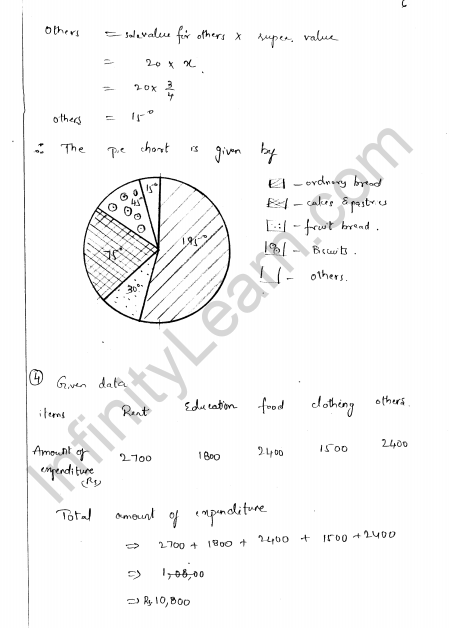 6
Others = sale value for others × super. value
= 20 × x.
= 20 × 3/4
others = 15°
∴ The pie chart is given by
15°
45°
195°
75°
30°
– ordnary bread
– cakes & pastries
– fruit bread.
– Biscuits.
– others.
④ Given data
items Rent Education food clothing others.
Amount of expenditure (Rs) 2700 1800 2400 1500 2400
Total amount of expenditure
⇒ 2700 + 1800 + 2400 + 1500 + 2400
⇒ 1,08,00
⇒ Rs 10,800
InfinityLearn.com